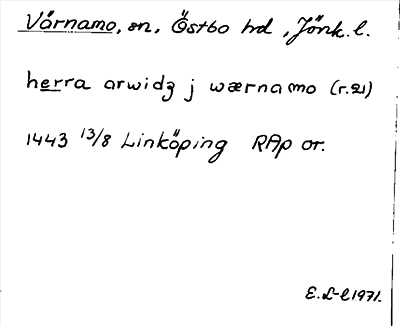 Värnamo, sn, Östbo hd, Jönk. l.
herra arwidz j wærnamo (r. 21)
1443 13/8 Linköping RAp or.
E. L-l 1971.